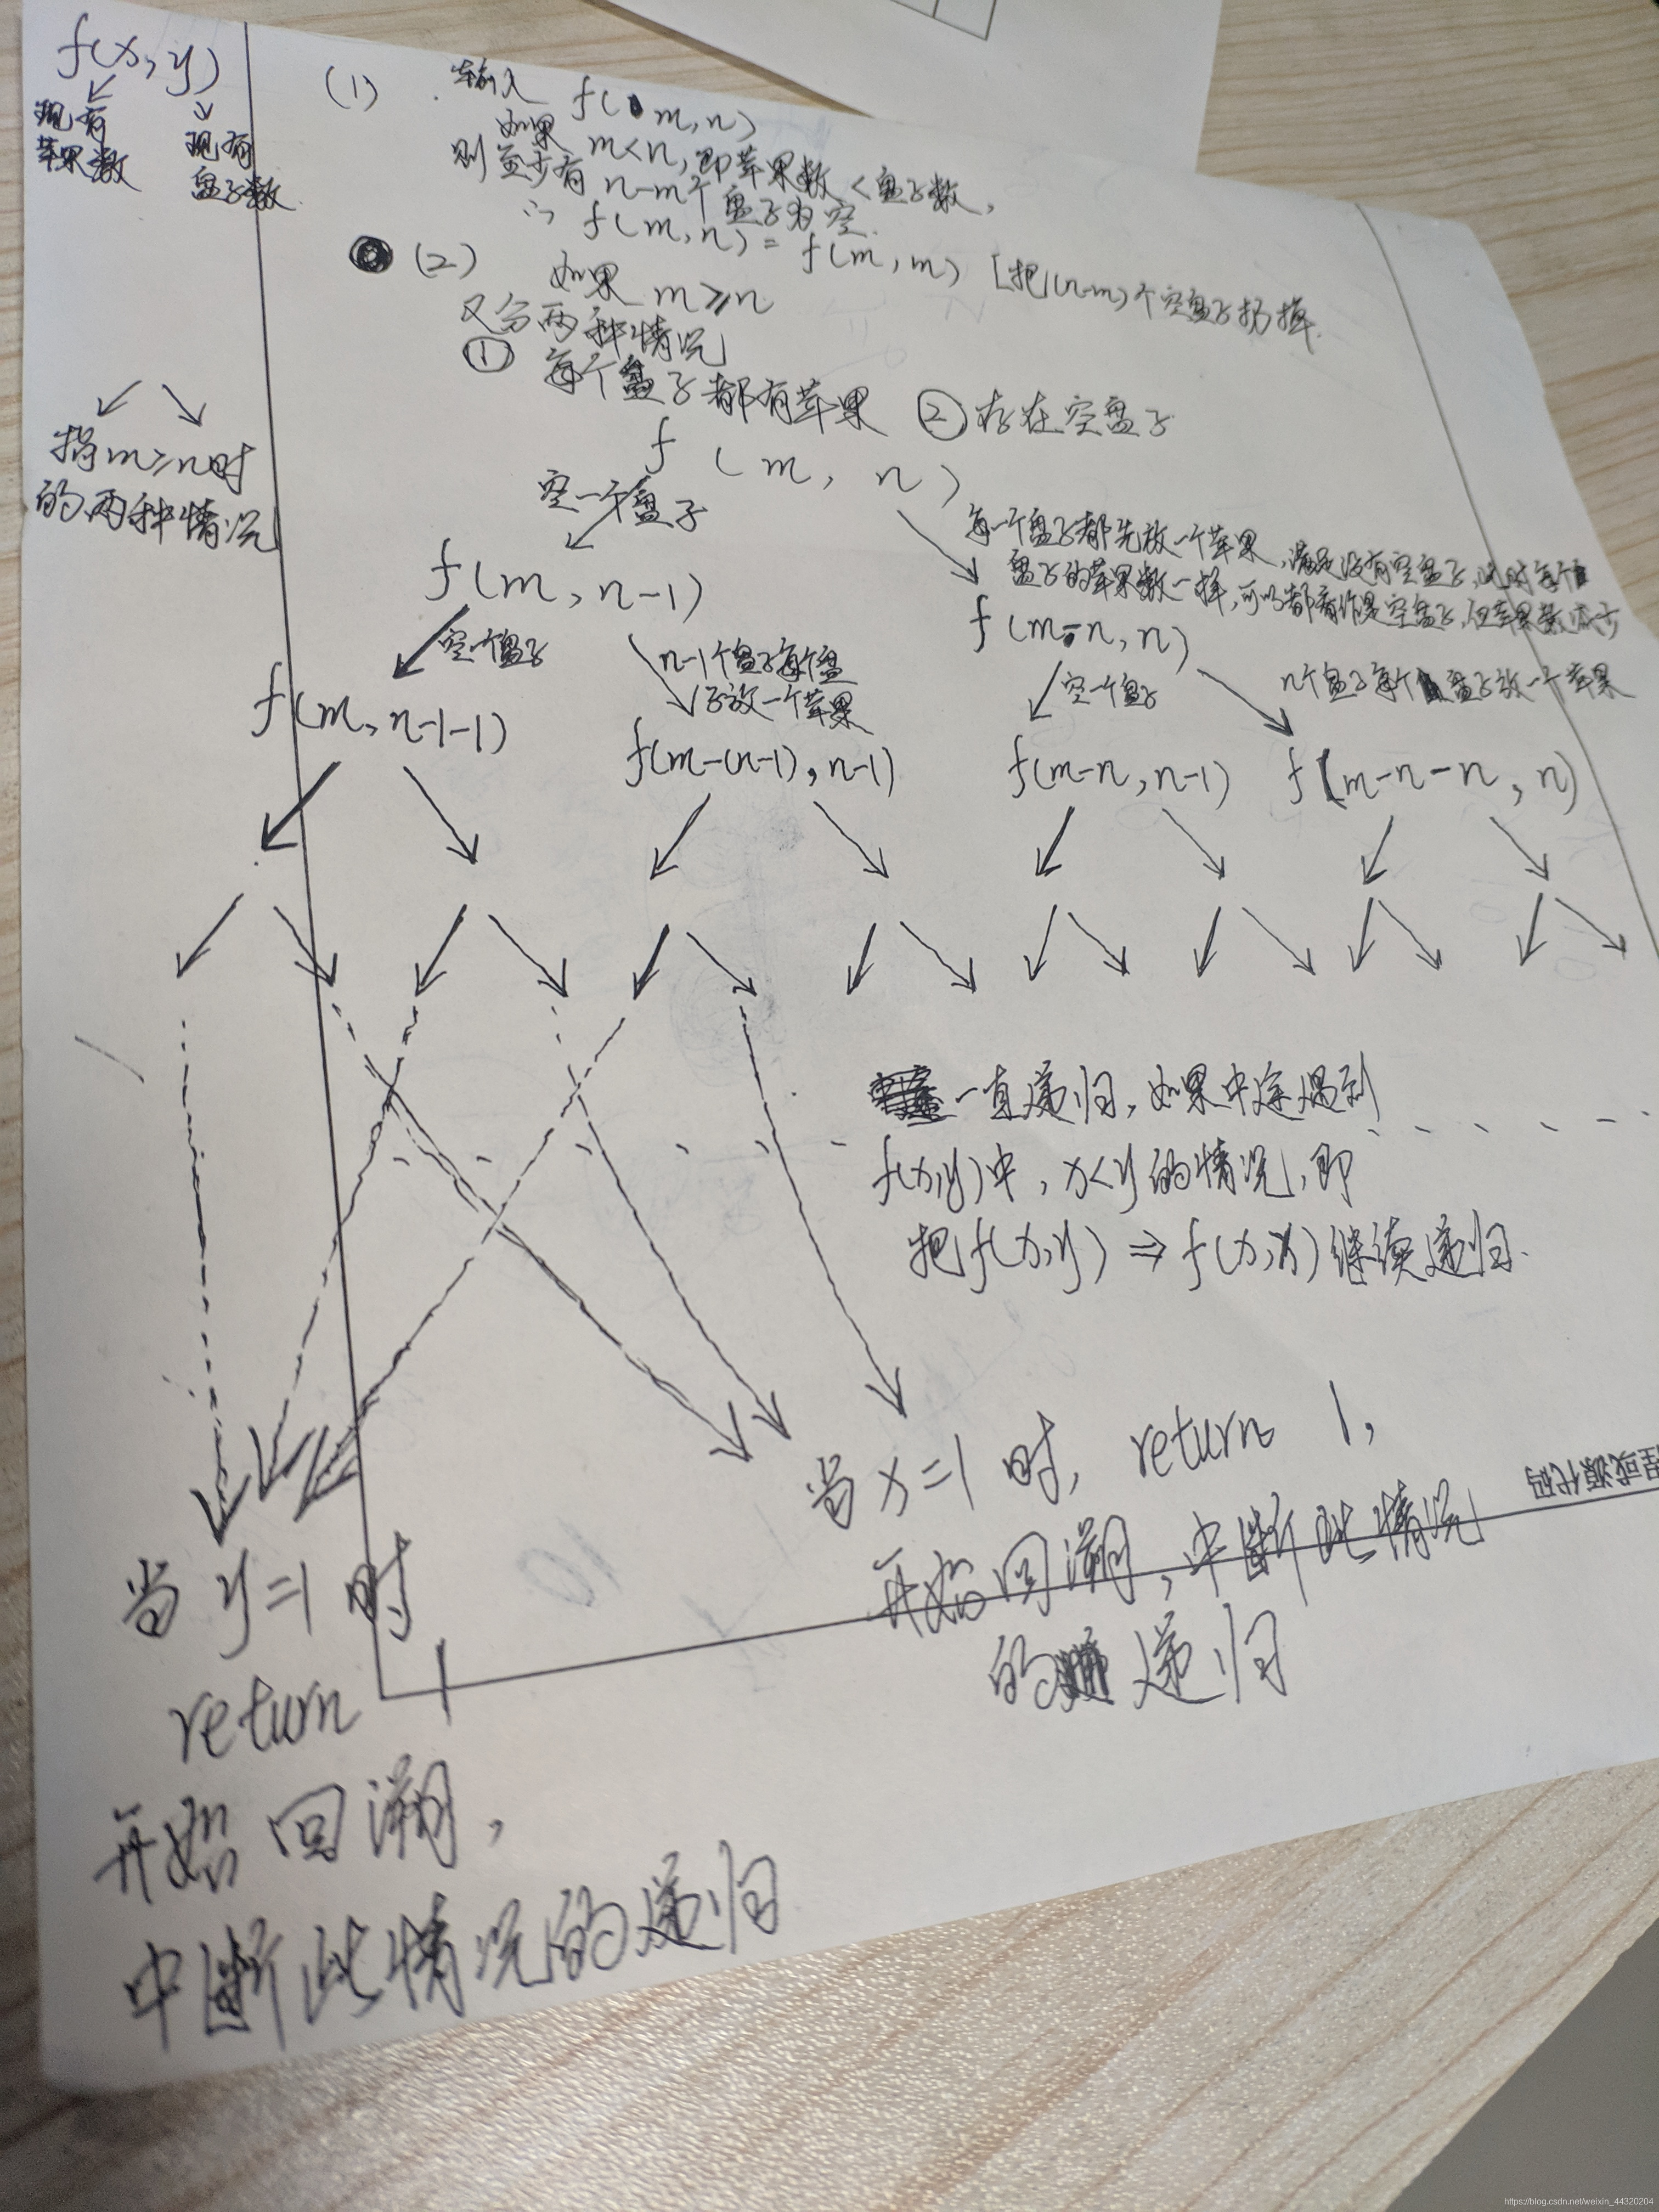 f(x,y)
现有
苹果数
现有
盘子数
(1) 输入 f(m,n)
如果 m<n,即苹果数<盘子数,
则至少有 n-m个盘子为空.
∴ f(m,n) = f(m,m) [把(n-m)个空盘子扔掉.
(2) 如果 m≥n
又分两种情况
① 每个盘子都有苹果 ② 存在空盘子
指m≥n时
的两种情况
f(m,n)
空一个盘子
每一个盘子都先放一个苹果,满足没有空盘子,此时每个
盘子的苹果数一样,可以都看作是空盘子,但苹果数减少
f(m,n-1)
f(m-n,n)
空一个盘子
n-1个盘子每个盘
子放一个苹果
空一个盘子
n个盘子每个盘子放一个苹果
f(m,n-1-1)
f(m-(n-1),n-1)
f(m-n,n-1)
f(m-n-n,n)
一直递归,如果中途遇到
f(x,y)中,x<y的情况,即
把f(x,y)⇒f(x,x)继续递归.
当x=1时, return 1,
开始回溯,中断此情况
的递归
程或源代码
当y=1时
return 1
开始回溯,
中断此情况的递归
https://blog.csdn.net/weixin_44320204